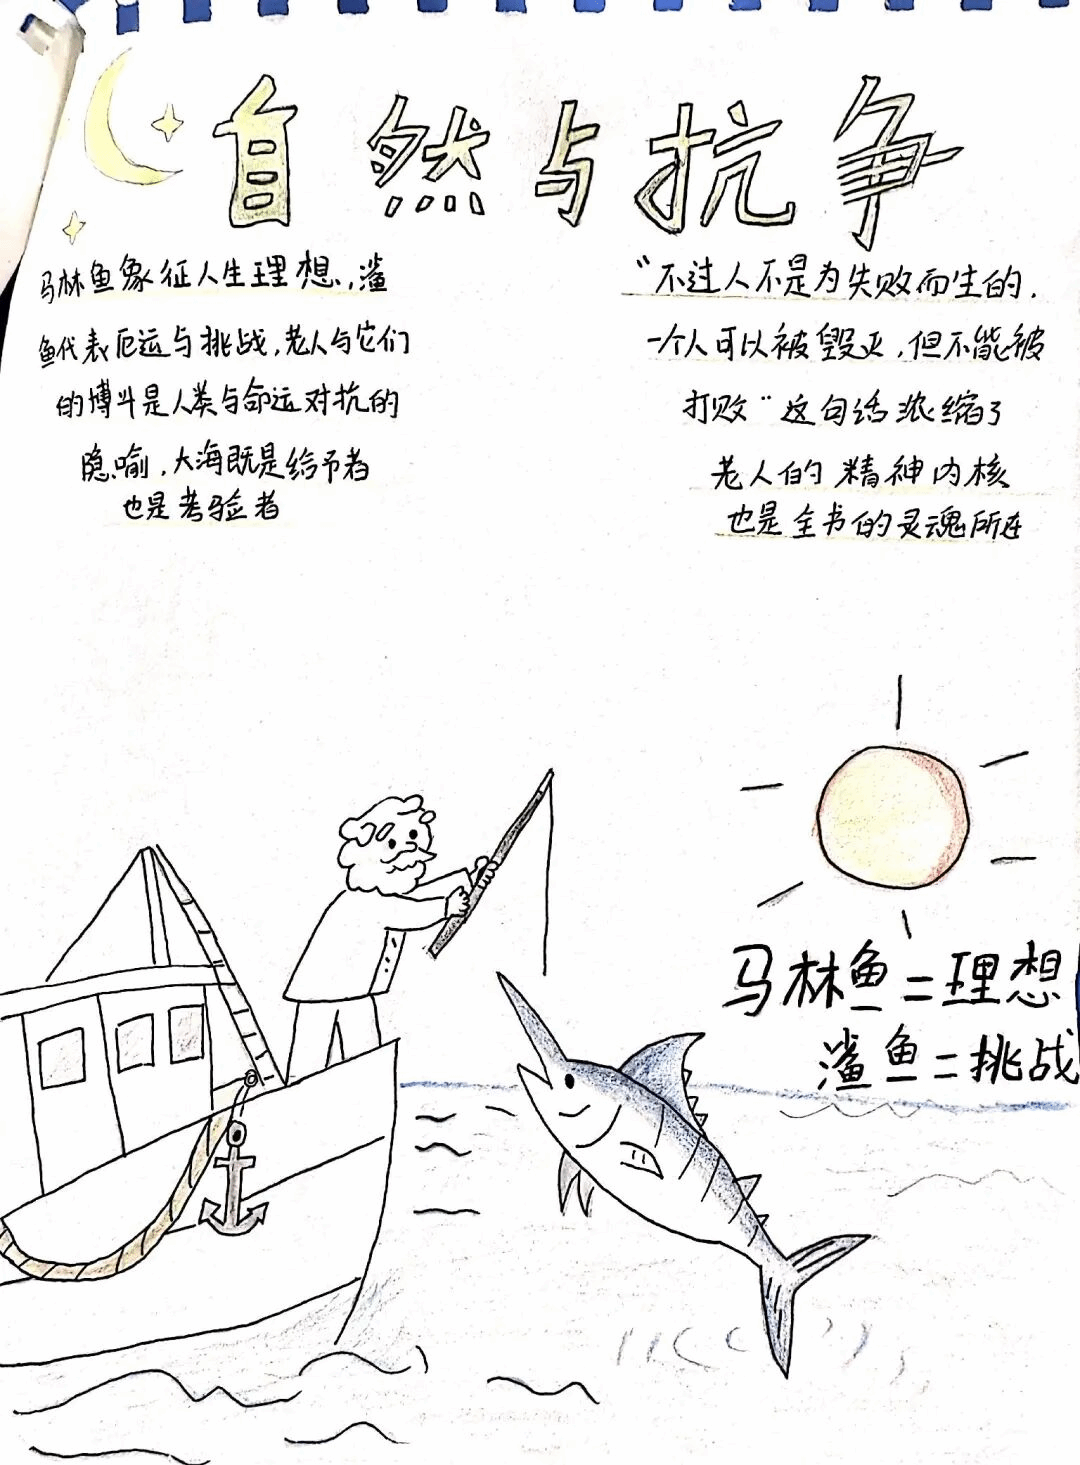 自然与抗争
马林鱼象征人生理想，鲨
鱼代表厄运与挑战，老人与它们
的博斗是人类与命运对抗的
隐喻，大海既是给予者
也是考验者
“不过人不是为失败而生的，
一个人可以被毁灭，但不能被
打败”这句话浓缩了
老人的精神内核
也是全书的灵魂所在
马林鱼=理想
鲨鱼=挑战